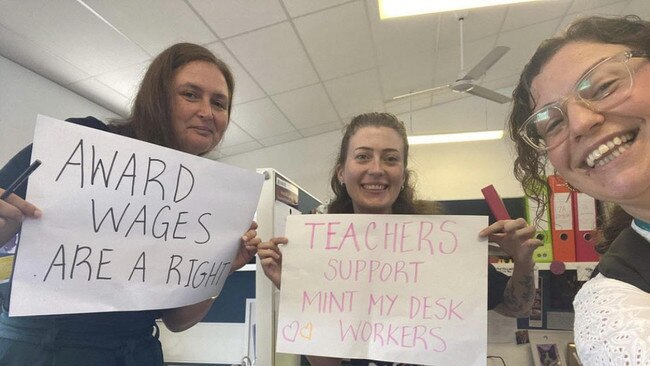 AWARD
WAGES
ARE A RIGHT
TEACHERS
SUPPORT
MINT MY DESK
WORKERS